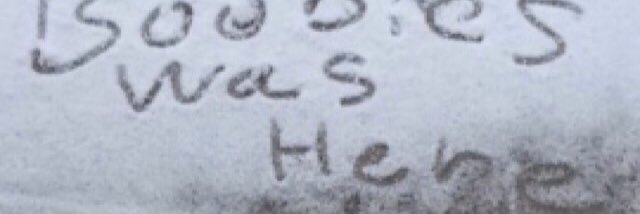 Boobies
Was
Here